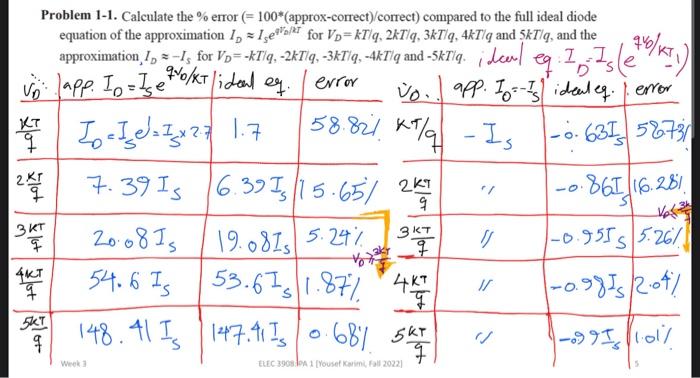 Problem 1-1. Calculate the % error (= 100*(approx-correct)/correct) compared to the full ideal diode
equation of the approximation I_D ≈ I_s e^{qV_D/kT} for V_D= kT/q, 2kT/q, 3kT/q, 4kT/q and 5kT/q, and the
approximation I_D ≈ -I_s for V_D= -kT/q, -2kT/q, -3kT/q, -4kT/q and -5kT/q.
ideal eq. I_D = I_s(e^{qV_D/KT} -1)
V_D. app. I_D = I_s e^{qV_D/KT} ideal eq. error V_D. app. I_D = -I_s ideal eq. error
KT/q I_D = I_s e^1 = I_s × 2.7 1.7 58.82% KT/q - I_s -0.63 I_s 58.73%
2KT/q 7.39 I_s 6.39 I_s 15.65% 2KT/q " -0.86 I_s 16.28%
3KT/q 20.08 I_s 19.08 I_s 5.24% 3KT/q " -0.95 I_s 5.26%
4KT/q 54.6 I_s 53.6 I_s 1.87% 4KT/q " -0.98 I_s 2.04%
5KT/q 148.41 I_s 147.41 I_s 0.68% 5KT/q " -0.99 I_s 1.01%
Week 3 ELEC 3908: PA 1 [Yousef Karimi, Fall 2022] 5